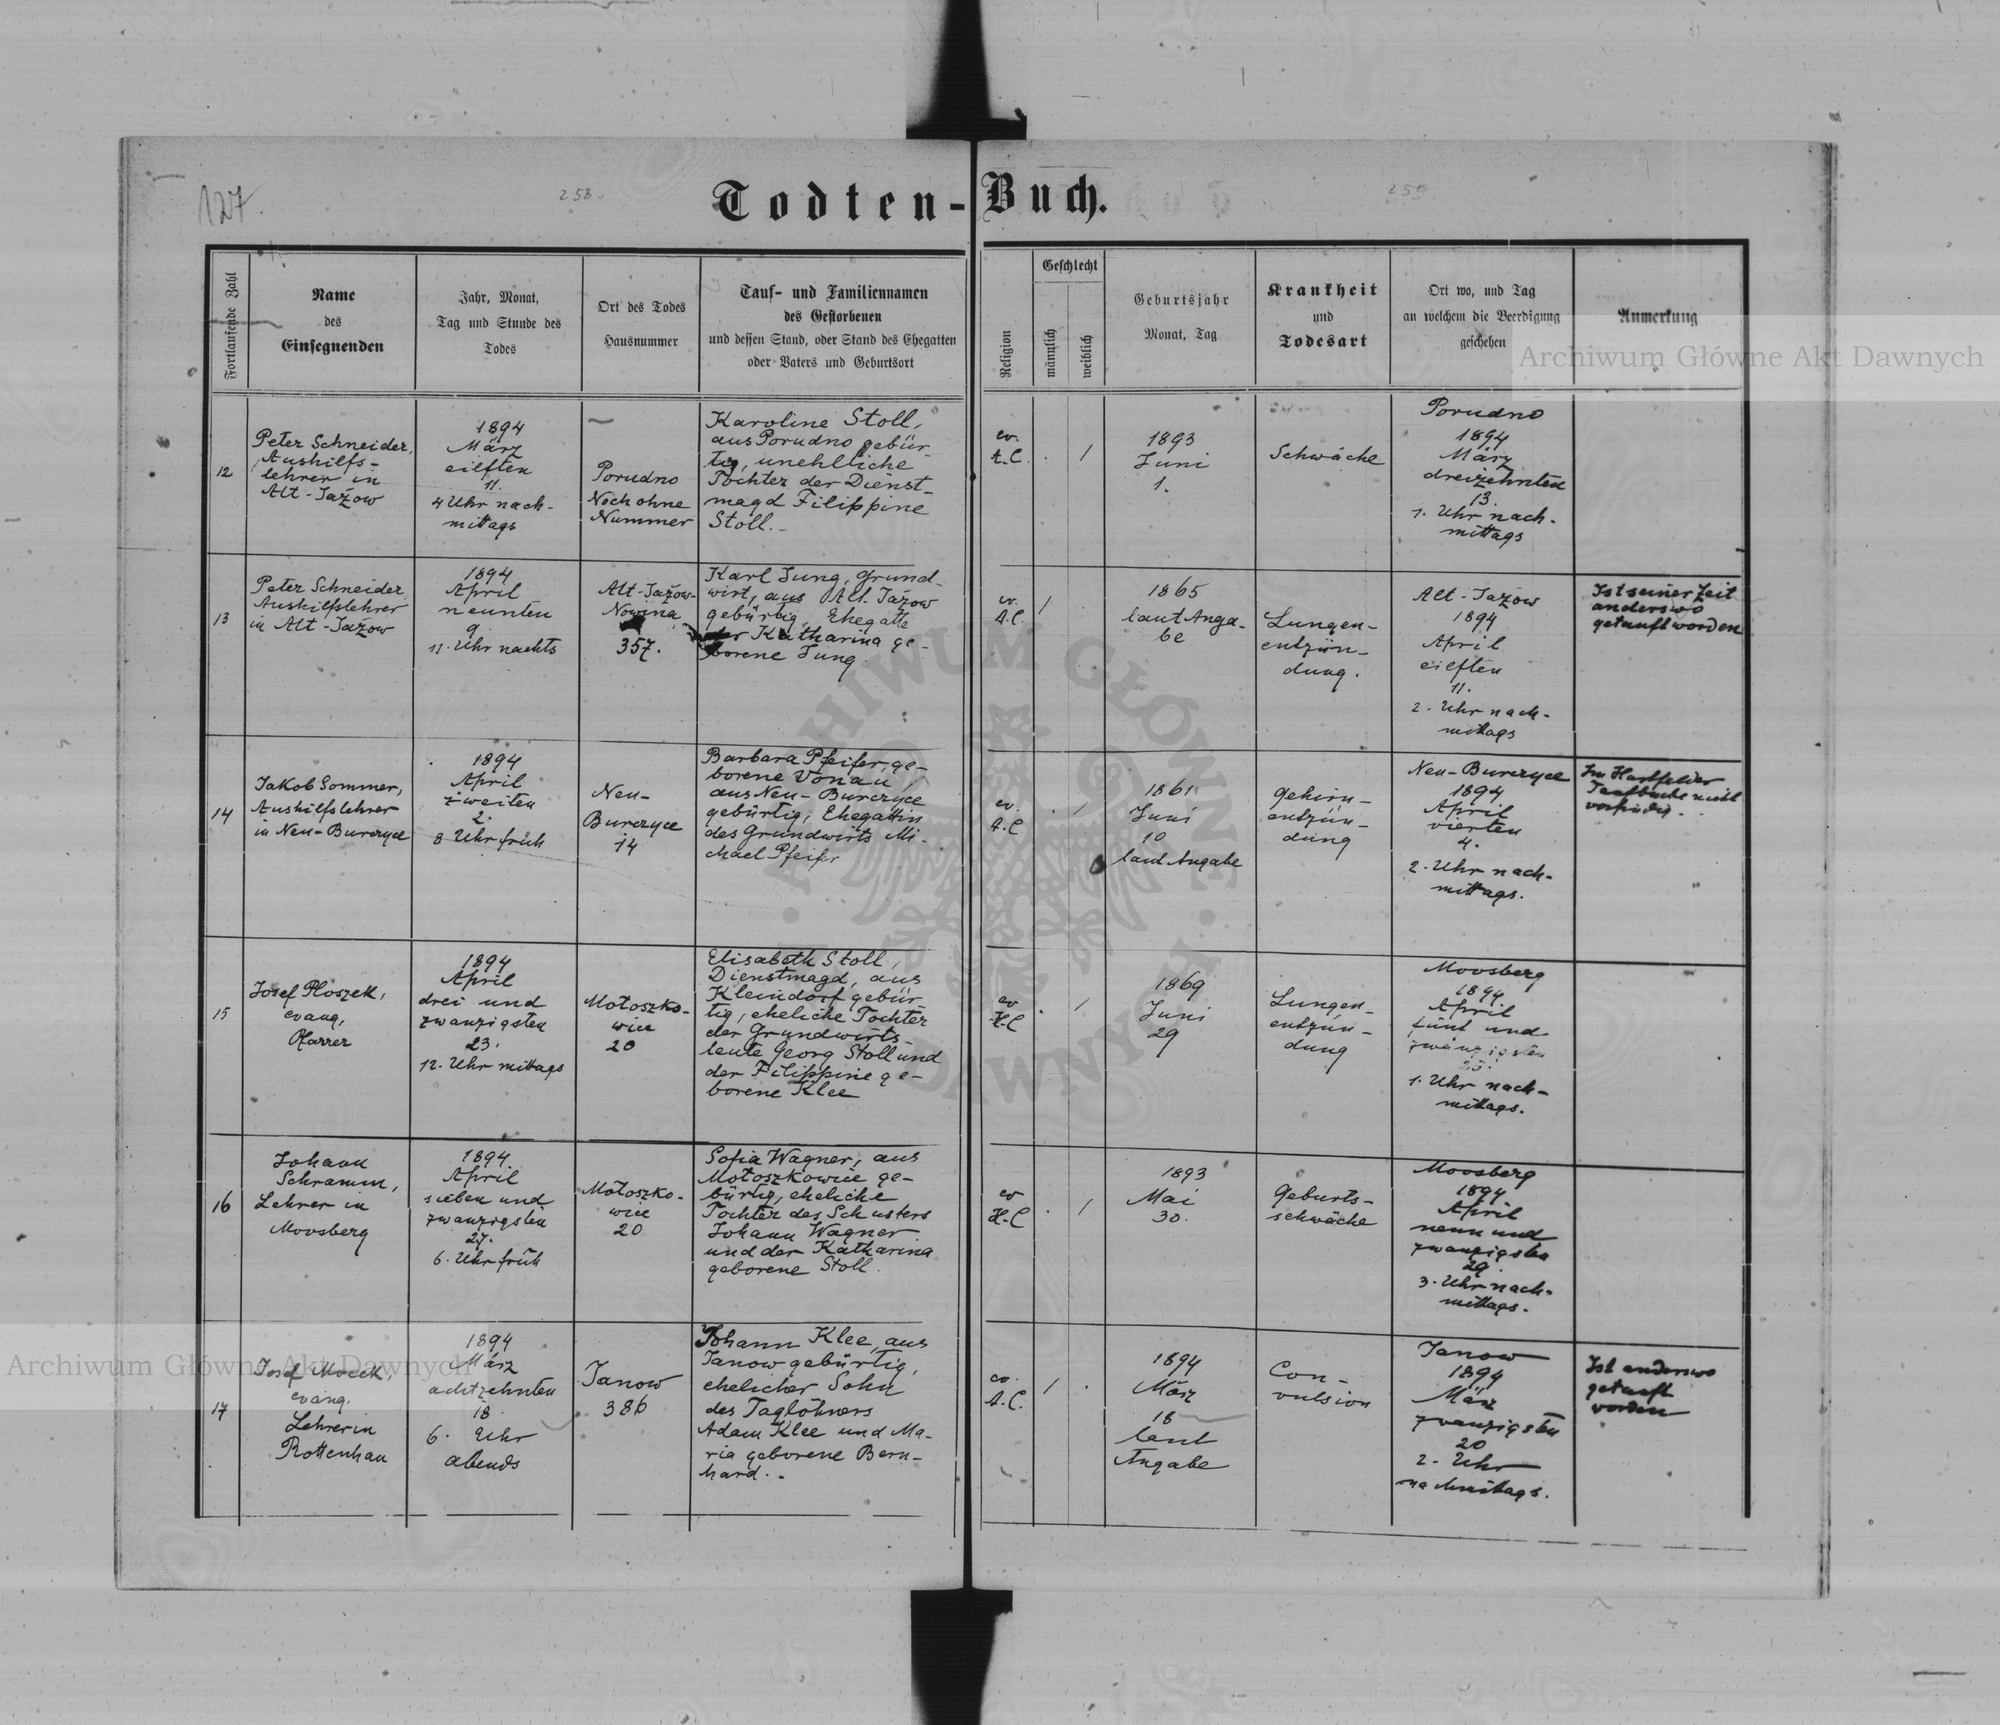 127.
258.
259
Todten-Buch.
Fortlaufende Zahl
Name
des
Einsegnenden
Jahr, Monat,
Tag und Stunde des
Todes
Ort des Todes
Hausnummer
Tauf- und Familiennamen
des Gestorbenen
und dessen Stand, oder Stand des Ehegatten
oder Vaters und Geburtsort
Religion
Geschlecht
männlich
weiblich
Geburtsjahr
Monat, Tag
Krankheit
und
Todesart
Ort wo, und Tag
an welchem die Beerdigung
geschehen
Anmerkung
12
Peter Schneider,
Aushilfs-
lehrer in
Alt-Jažow
1894
März
eilften
11.
4 Uhr nach-
mittags
Porudno
Noch ohne
Nummer
Karoline Stoll,
aus Porudno gebür-
tig, unehlliche
Tochter der Dienst-
magd Filippine
Stoll.-
ev.
A.C.
. /
1893
Juni
1.
Schwäche
Porudno
1894
März
dreizehnten
13.
1. Uhr nach-
mittags
13
Peter Schneider,
Aushilfslehrer
in Alt-Jažow
1894
April
neunten
9.
11. Uhr nachts
Alt-Jažow-
Nowina
357.
Karl Jung, Grund-
wirt, aus Alt-Jažow
gebürtig, Ehegatte
der Katharina ge-
borene Jung.
ev.
A.C.
/ .
1865
laut Anga-
be
Lungen-
entzün-
dung.
Alt-Jažow
1894
April
eilften
11.
2. Uhr nach-
mittags
Ist seiner Zeit
anderswo
getauft worden
14
Jakob Sommer,
Aushilfslehrer
in Neu-Burczyce
1894
April
zweiten
2.
8 Uhr früh
Neu-
Burczyce
14
Barbara Pfeifer, ge-
borene Vonau,
aus Neu-Burczyce
gebürtig, Ehegattin
des Grundwirts Mi-
chael Pfeifer
ev.
A.C
. /
1861
Juni
10
laut Angabe
Gehirn-
entzün-
dung
Neu-Burczyce
1894
April
vierten
4.
2. Uhr nach-
mittags.
Im Hartfelder
Taufbuche nicht
vorfindig.
15
Josef Ploszek,
evang.
Pfarrer
1894
April
drei und
zwanzigsten
23.
12. Uhr mittags
Mołoszko-
wice
20
Elisabeth Stoll,
Dienstmagd, aus
Kleindorf gebür-
tig, eheliche Tochter
der Grundwirts-
leute Georg Stoll und
der Filippine ge-
borene Klee
ev
H.C
. /
1869
Juni
29
Lungen-
entzün-
dung
Moosberg
1894.
April
fünf und
zwanzigsten
25.
1. Uhr nach-
mittags.
16
Johann
Schramm,
Lehrer in
Moosberg
1894
April
sieben und
zwanzigsten
27.
6. Uhr früh
Mołoszko-
wice
20
Sofia Wagner, aus
Mołoszkowice ge-
bürtig, eheliche
Tochter des Schusters
Johann Wagner
und der Katharina
geborene Stoll.
ev
H.C
. /
1893
Mai
30.
Geburts-
schwäche
Moosberg
1894
April
neun und
zwanzigsten
29.
3. Uhr nach-
mittags.
17
Josef Mocek,
evang.
Lehrer in
Rottenhan
1894
März
achtzehnten
18.
6. Uhr
abends
Janow
386
Johann Klee, aus
Janow gebürtig,
ehelicher Sohn
des Taglöhners
Adam Klee und Ma-
ria geborene Bern-
hard.-
ev.
A.C.
/ .
1894
März
18
laut
Angabe
Con-
vulsion
Janow
1894
März
zwanzigsten
20
2. Uhr
nachmittags.
Ist anderswo
getauft
worden
Archiwum Główne Akt Dawnych
Archiwum Główne Akt Dawnych
ARCHIWUM GŁÓWNE AKT DAWNYCH